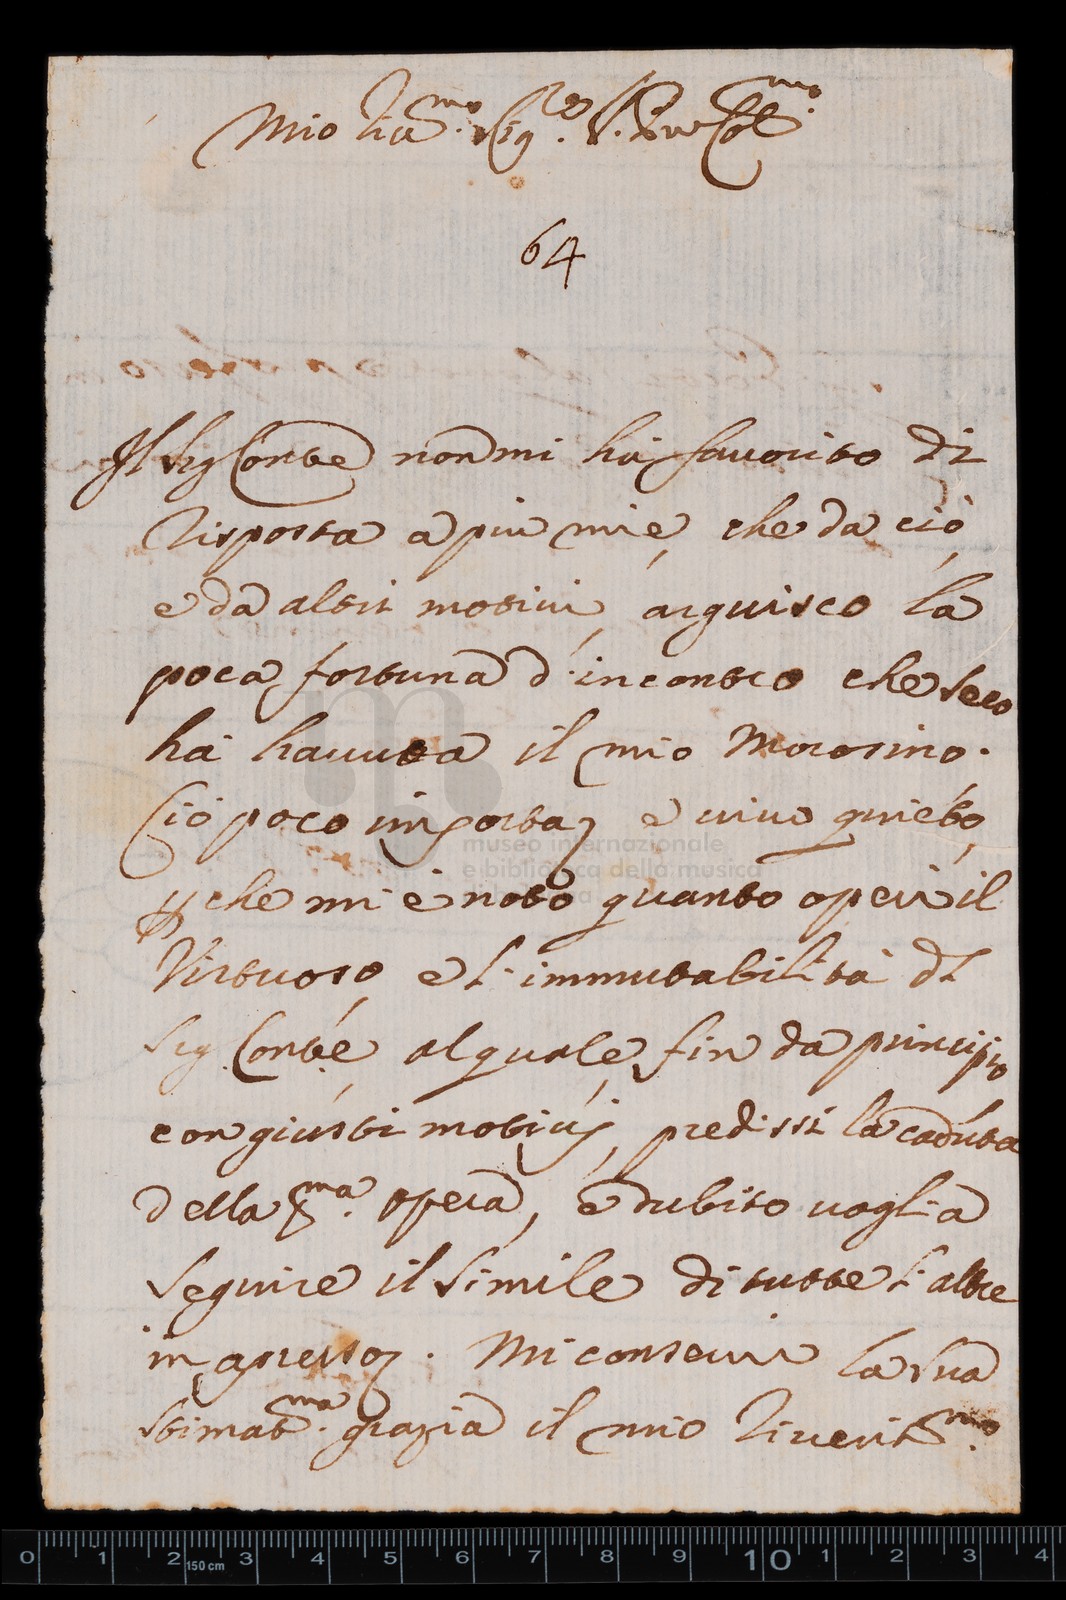 Mio Riv.mo Sig.re P.ron Col.mo
64
Il Sig Conte non mi hà favorito di
risposta a piu mie, che da ciò,
e da altri motivi, arguisco la
poca fortuna d'incontro che seco
hà havuta il mio Morosino.
Ciò poco importa, e vivo quieto,
che mi è noto quanto operi il
Virtuoso e l'immutabilità dl
Sig Conte, al quale fin da principio
con giusti motivi, predissi la caduta
della p.ma opera, e dubito voglia
seguire il simile di tutte l'altre
in apresso. Mi conservi la sua
stimat.ma grazia il mio riverit.mo
museo internazionale
e biblioteca della musica